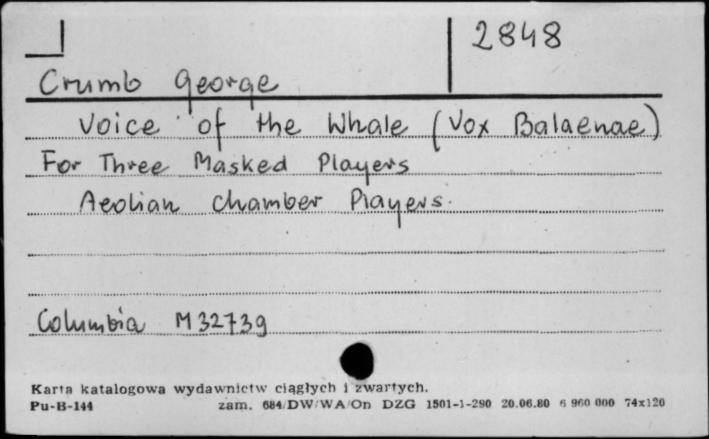 2848
Crumb George
Voice of the Whale (Vox Balaenae)
For Three Masked Players
Aeolian Chamber Players.
Columbia M 32739
Karta katalogowa wydawnictw ciągłych i zwartych.
Pu-B-144 zam. 684/DW/WA/On DZG 1501-1-290 20.06.80 6 960 000 74x120